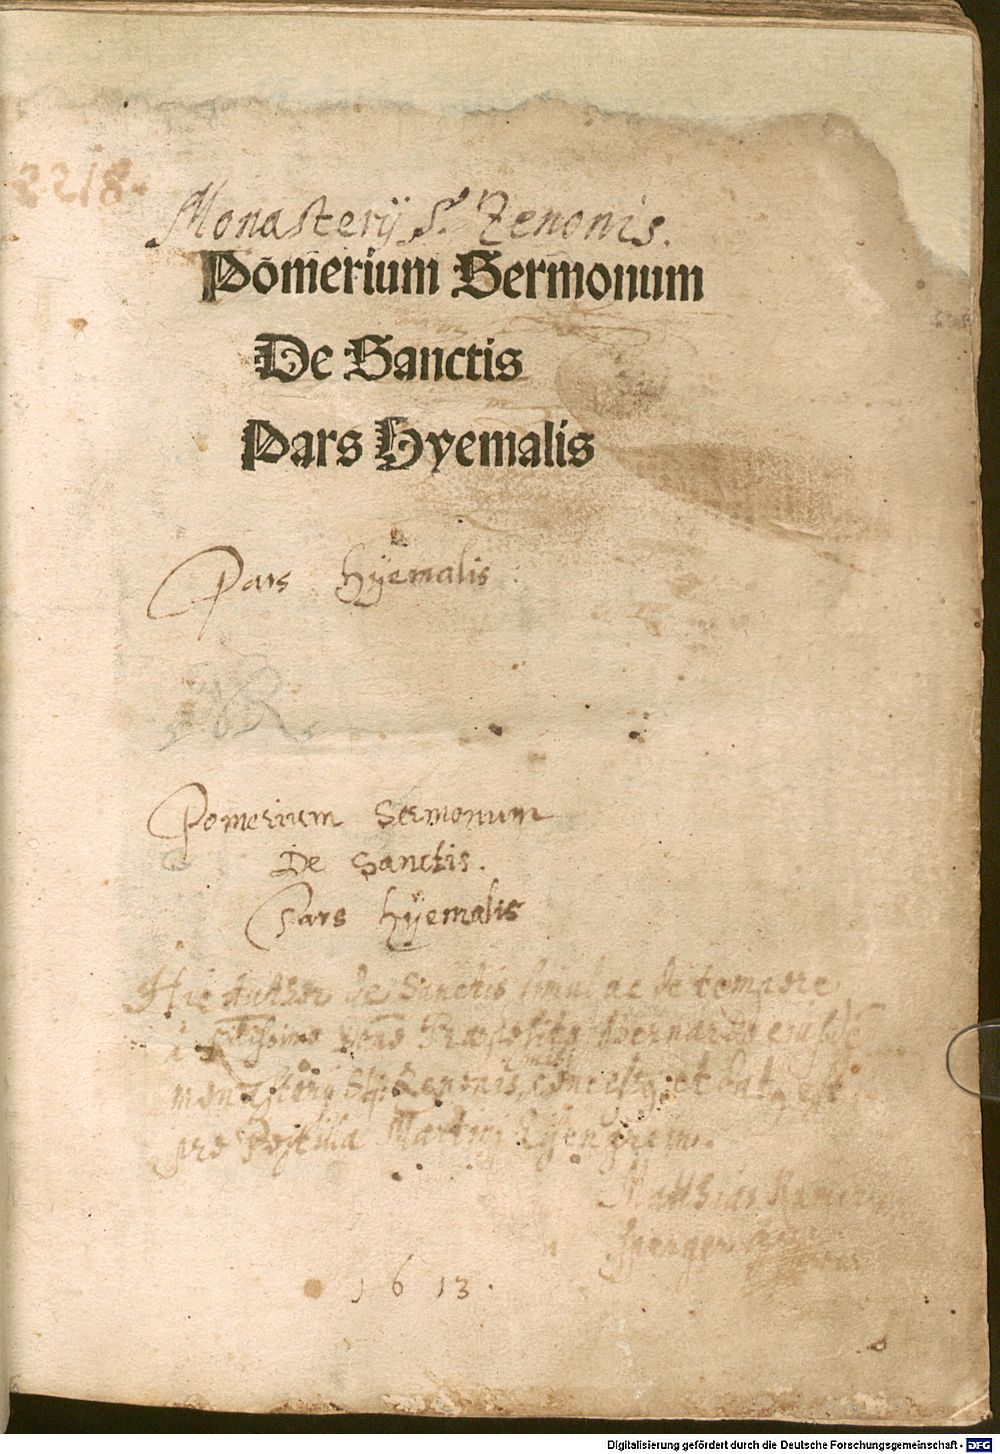 2218.
Monasterij S. Zenonis.
Pomerium Sermonum
De Sanctis
Pars Hyemalis
Pars hÿemalis
Pomerium Sermonum
De Sanctis.
Pars hÿemalis
Hic Author de Sanctis simul ac de tempore
à Præposito Bernardo
monasterij Zenonis, concessus et est
pro Postilla Martinj Eysengrein.
Matthias
1613.
Digitalisierung gefördert durch die Deutsche Forschungsgemeinschaft - DFG